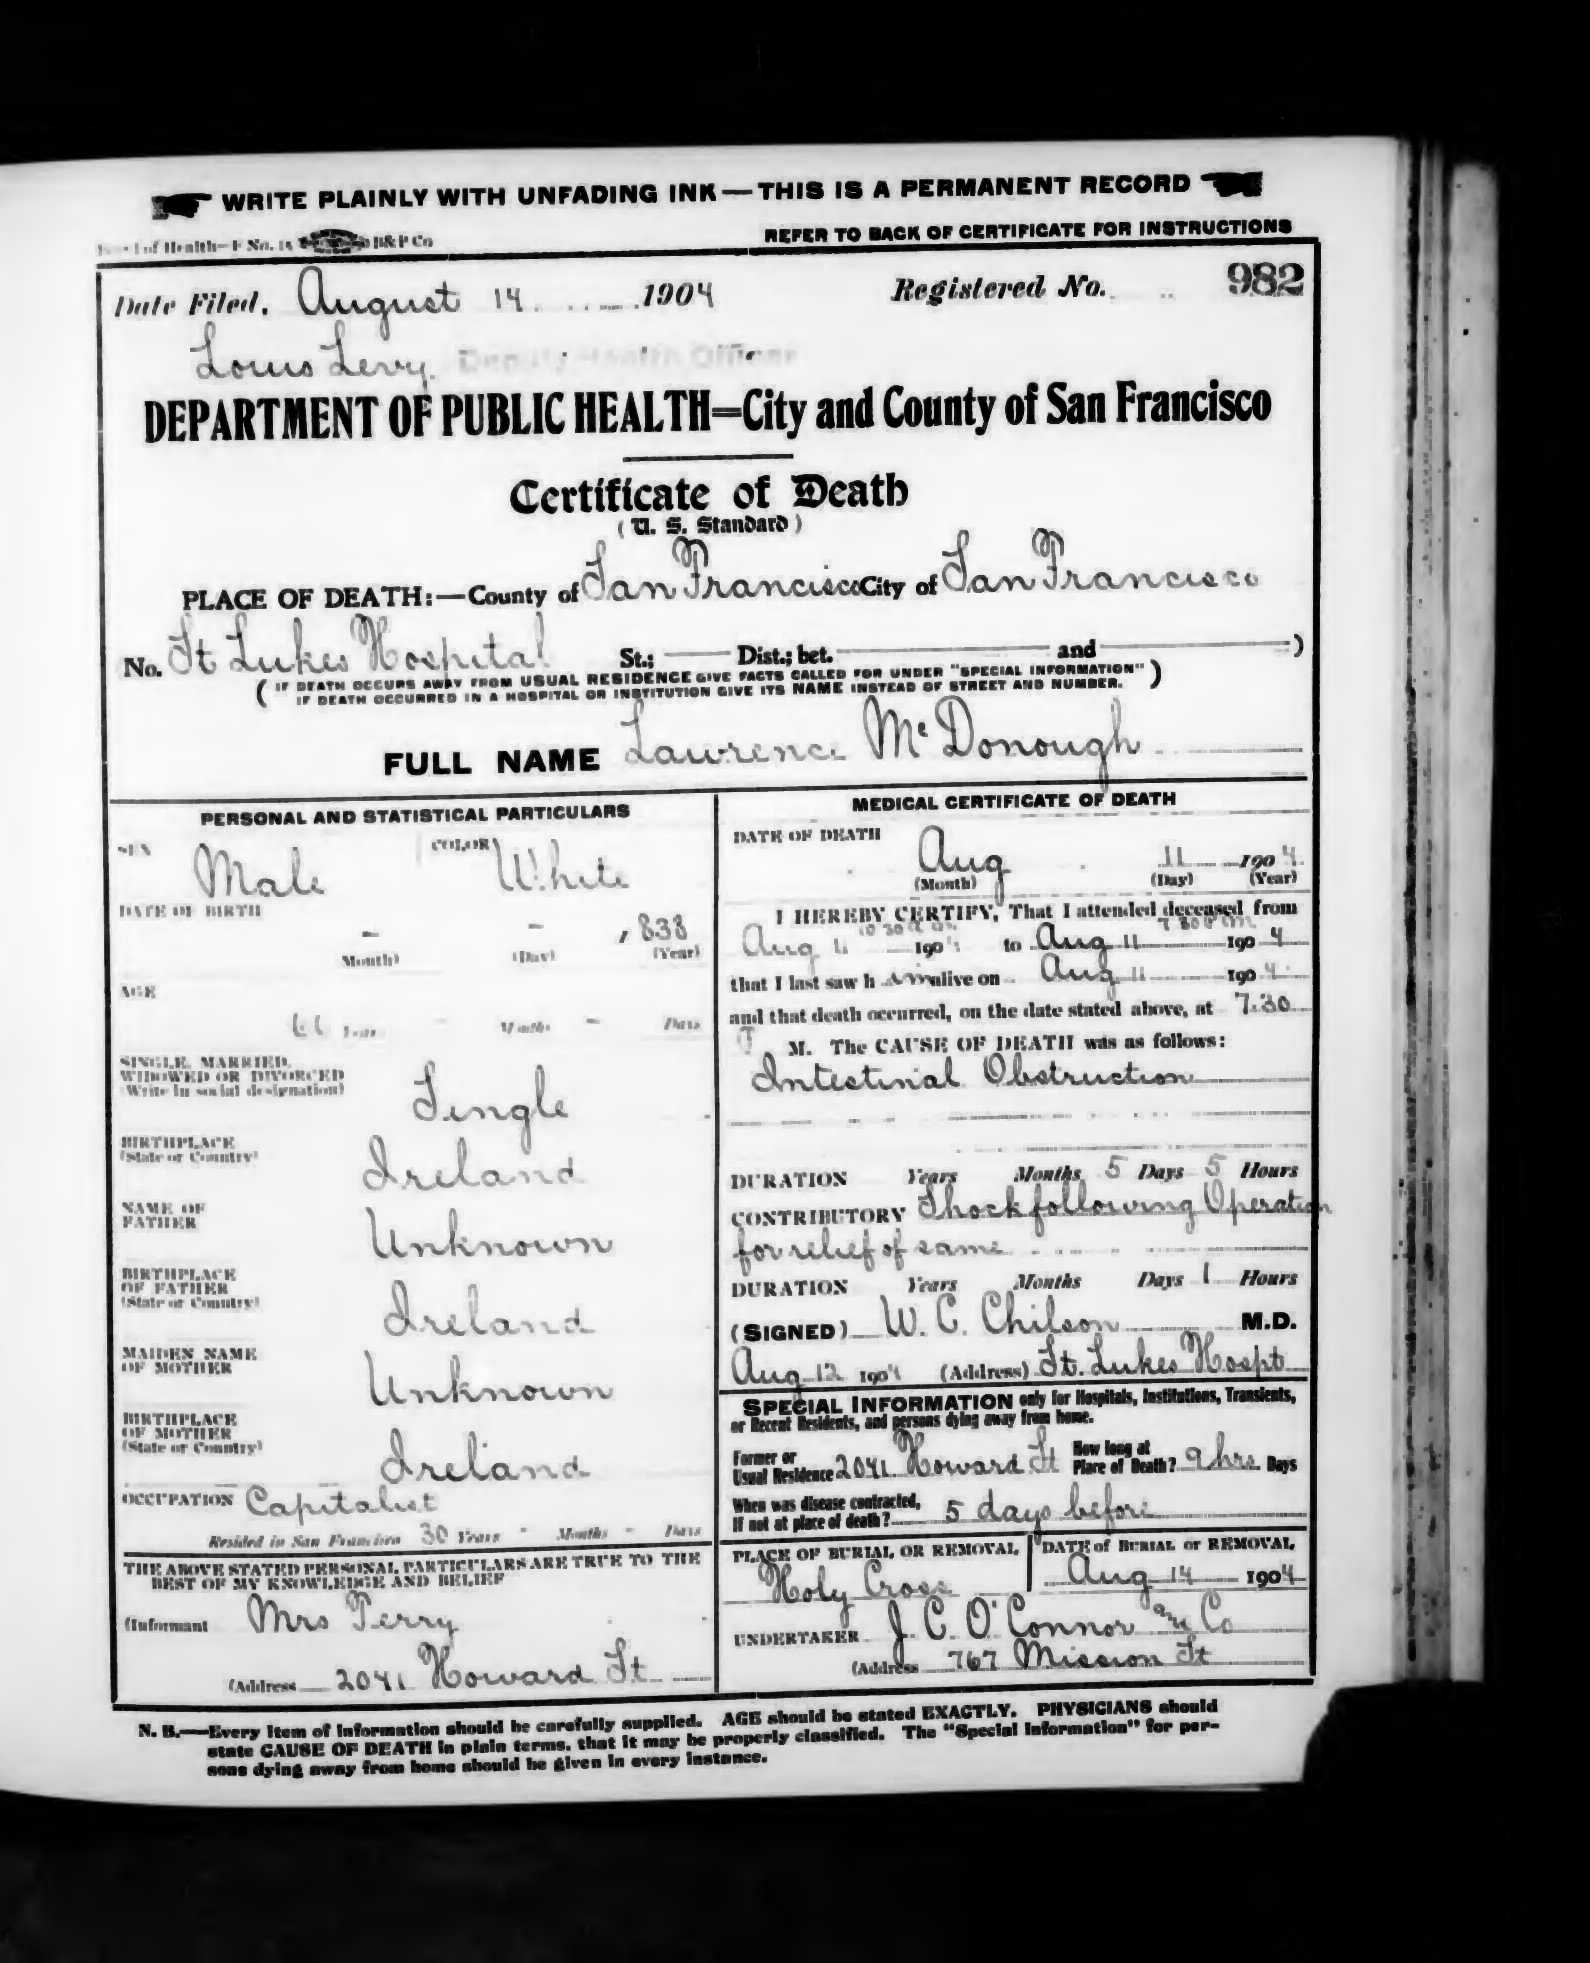 WRITE PLAINLY WITH UNFADING INK — THIS IS A PERMANENT RECORD
of Health—F No. B&P Co
REFER TO BACK OF CERTIFICATE FOR INSTRUCTIONS
Date Filed, August 14 1904 Registered No. 982
Louis Levy. Deputy Health Officer
DEPARTMENT OF PUBLIC HEALTH=City and County of San Francisco
Certificate of Death
( U. S. Standard )
PLACE OF DEATH:—County of San Francisco City of San Francisco
No. St Lukes Hospital St.; — Dist.; bet. — and — )
( IF DEATH OCCURS AWAY FROM USUAL RESIDENCE GIVE FACTS CALLED FOR UNDER "SPECIAL INFORMATION" )
IF DEATH OCCURRED IN A HOSPITAL OR INSTITUTION GIVE ITS NAME INSTEAD OF STREET AND NUMBER.
FULL NAME Lawrence McDonough
PERSONAL AND STATISTICAL PARTICULARS
SEX Male COLOR White
DATE OF BIRTH
- - , 838
(Month) (Day) (Year)
AGE
66 Years - Months - Days
SINGLE, MARRIED,
WIDOWED OR DIVORCED
(Write in social designation) Single
BIRTHPLACE
(State or Country) Ireland
NAME OF
FATHER Unknown
BIRTHPLACE
OF FATHER
(State or Country) Ireland
MAIDEN NAME
OF MOTHER Unknown
BIRTHPLACE
OF MOTHER
(State or Country) Ireland
OCCUPATION Capitalist
Resided in San Francisco 30 Years - Months - Days
THE ABOVE STATED PERSONAL PARTICULARS ARE TRUE TO THE
BEST OF MY KNOWLEDGE AND BELIEF
(Informant Mrs Perry
(Address 2041 Howard St
MEDICAL CERTIFICATE OF DEATH
DATE OF DEATH
Aug 11 1904
(Month) (Day) (Year)
I HEREBY CERTIFY, That I attended deceased from
Aug 11 10 30 a m 1904 to Aug 11 7 30 P M 1904
that I last saw h im alive on Aug 11 1904
and that death occurred, on the date stated above, at 7.30
P M. The CAUSE OF DEATH was as follows:
Intestinal Obstruction
DURATION Years Months 5 Days 5 Hours
CONTRIBUTORY Shock following Operation
for relief of same
DURATION Years Months Days 1 Hours
(SIGNED) W. C. Chilson M.D.
Aug 12 1904 (Address) St. Lukes Hospt
SPECIAL INFORMATION only for Hospitals, Institutions, Transients,
or Recent Residents, and persons dying away from home.
Former or
Usual Residence 2041 Howard St
How long at
Place of Death? 9 hrs Days
When was disease contracted,
If not at place of death? 5 days before
PLACE OF BURIAL OR REMOVAL DATE of BURIAL or REMOVAL
Holy Cross Aug 14 1904
UNDERTAKER J. C. O'Connor and Co
(Address 767 Mission St
N. B.—Every item of information should be carefully supplied. AGE should be stated EXACTLY. PHYSICIANS should
state CAUSE OF DEATH in plain terms, that it may be properly classified. The "Special Information" for per-
sons dying away from home should be given in every instance.